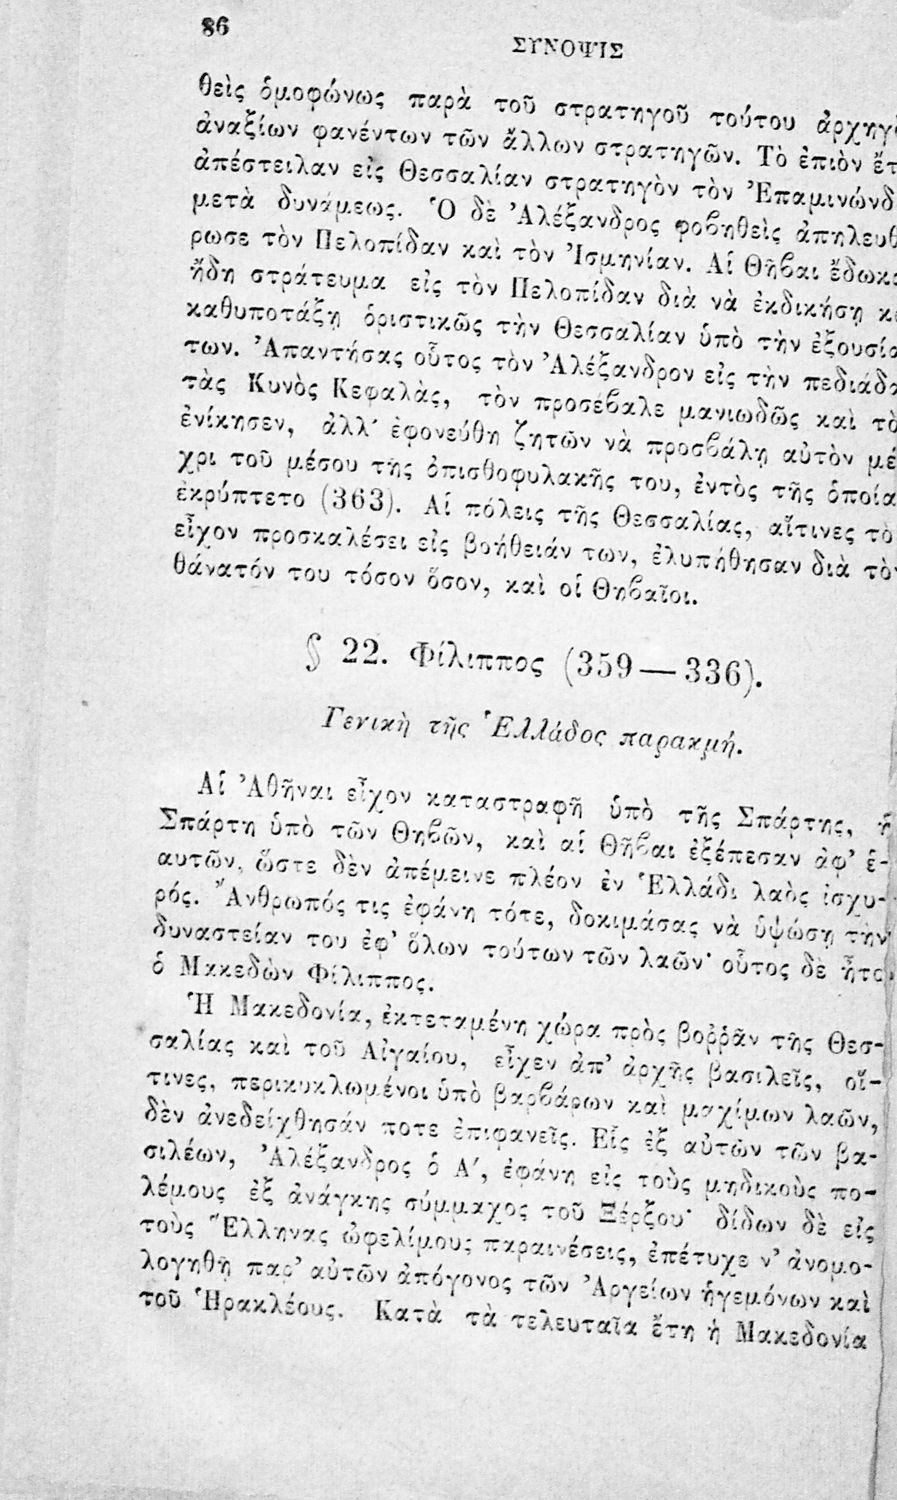 86
ΣΥΝΟΨΙΣ
θεὶς ὁμοφώνως παρὰ τοῦ στρατηγοῦ τούτου ἀρχηγὸ
ἀναξίων φανέντων τῶν ἄλλων στρατηγῶν. Τὸ ἐπιὸν ἔτ
ἀπέστειλαν εἰς Θεσσαλίαν στρατηγὸν τὸν Ἐπαμινώνδ
μετὰ δυνάμεως. Ὁ δὲ Ἀλέξανδρος φοβηθεὶς ἀπηλευθ
ρωσε τὸν Πελοπίδαν καὶ τὸν Ἰσμηνίαν. Αἱ Θῆβαι ἔδωκα
ἤδη στράτευμα εἰς τὸν Πελοπίδαν διὰ νὰ ἐκδικήσῃ κα
καθυποτάξῃ ὁριστικῶς τὴν Θεσσαλίαν ὑπὸ τὴν ἐξουσία
των. Ἀπαντήσας οὗτος τὸν Ἀλέξανδρον εἰς τὴν πεδιάδα
τὰς Κυνὸς Κεφαλὰς, τὸν προσέβαλε μανιωδῶς καὶ τὸ
ἐνίκησεν, ἀλλ' ἐφονεύθη ζητῶν νὰ προσβάλῃ αὐτὸν μέ
χρι τοῦ μέσου τῆς ὀπισθοφυλακῆς του, ἐντὸς τῆς ὁποία
ἐκρύπτετο (363). Αἱ πόλεις τῆς Θεσσαλίας, αἵτινες τὸ
εἶχον προσκαλέσει εἰς βοήθειάν των, ἐλυπήθησαν διὰ τὸν
θάνατόν του τόσον ὅσον, καὶ οἱ Θηβαῖοι.
§ 22. Φίλιππος (359 — 336).
Γενικὴ τῆς Ἑλλάδος παρακμή.
Αἱ Ἀθῆναι εἶχον καταστραφῆ ὑπὸ τῆς Σπάρτης, ἡ
Σπάρτη ὑπὸ τῶν Θηβῶν, καὶ αἱ Θῆβαι ἐξέπεσαν ἀφ' ἑ-
αυτῶν, ὥστε δὲν ἀπέμεινε πλέον ἐν Ἑλλάδι λαὸς ἰσχυ-
ρός. Ἄνθρωπός τις ἐφάνη τότε, δοκιμάσας νὰ ὑψώσῃ τὴν
δυναστείαν του ἐφ' ὅλων τούτων τῶν λαῶν· οὗτος δὲ ἦτο
ὁ Μακεδὼν Φίλιππος.
Ἡ Μακεδονία, ἐκτεταμένη χώρα πρὸς βοῤῥᾶν τῆς Θεσ-
σαλίας καὶ τοῦ Αἰγαίου, εἶχεν ἀπ' ἀρχῆς βασιλεῖς, οἵ-
τινες, περικυκλωμένοι ὑπὸ βαρβάρων καὶ μαχίμων λαῶν,
δὲν ἀνεδείχθησάν ποτε ἐπιφανεῖς. Εἷς ἐξ αὐτῶν τῶν βα-
σιλέων, Ἀλέξανδρος ὁ Α', ἐφάνη εἰς τοὺς μηδικοὺς πο-
λέμους ἐξ ἀνάγκης σύμμαχος τοῦ Ξέρξου· δίδων δὲ εἰς
τοὺς Ἕλληνας ὠφελίμους παραινέσεις, ἐπέτυχε ν' ἀνομο-
λογηθῇ παρ' αὐτῶν ἀπόγονος τῶν Ἀργείων ἡγεμόνων καὶ
τοῦ Ἡρακλέους. Κατὰ τὰ τελευταῖα ἔτη ἡ Μακεδονία